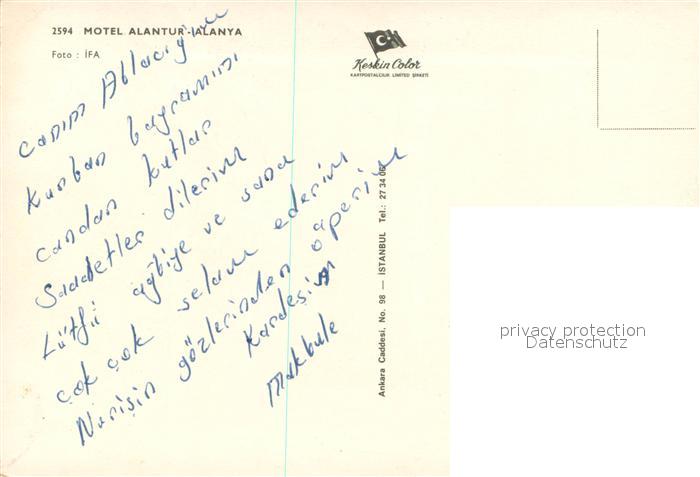 2594 MOTEL ALANTUR-ALANYA
Foto : İFA
Keskin Color
KARTPOSTALCILIK LIMITED ŞİRKETİ
canım Ablacığım
Kurban bayramını
candan kutlar
Saadetler dilerim
Lütfü ağbiye ve sana
çok çok selam ederim
Nurişin gözlerinden öperim
Kardeşin
Makbule
Ankara Caddesi, No. 98 — İSTANBUL Tel.: 27 34 06
privacy protection
Datenschutz